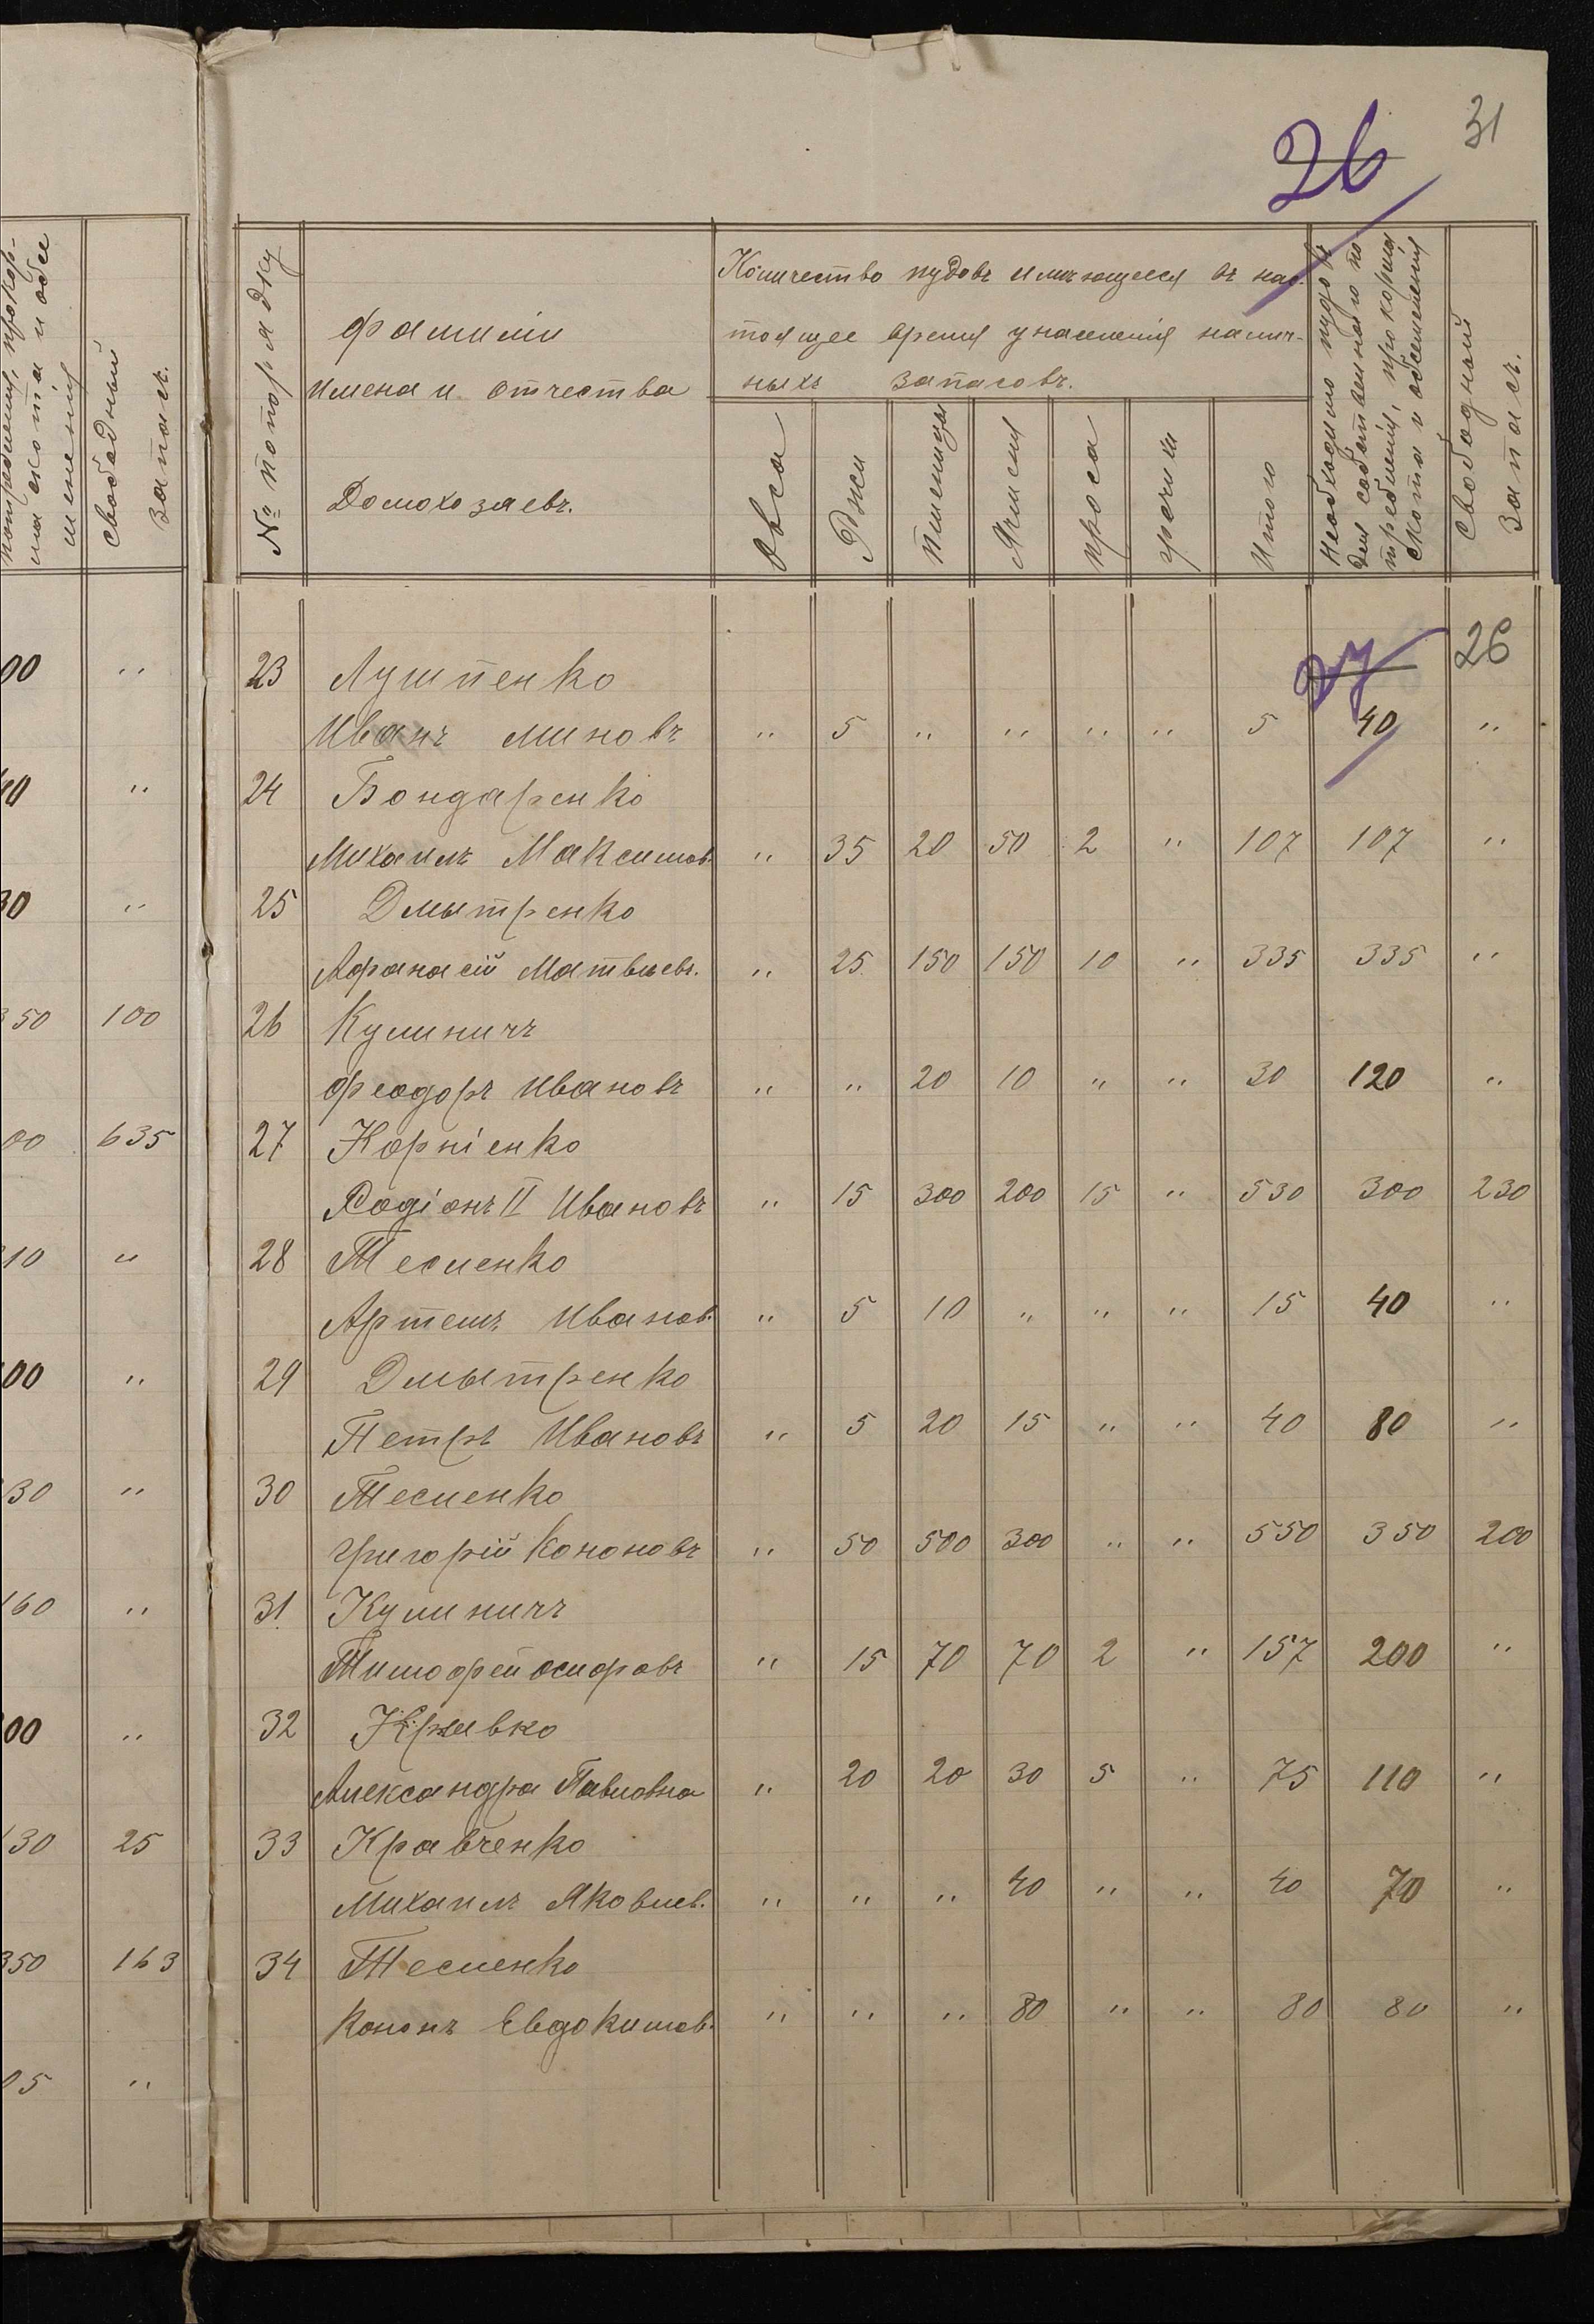 31
26
потребленія, прокор-
ма скота и обсе
мененія
Свободный
запасъ.
№ по порядку
фамиліи
имена и отчества
Домохозаевъ.
Количество пудовъ имѣющееся въ нас-
тоящее время у населенія налич-
ныхъ запасовъ.
Овса
Ржи
Пшеницы
Ячменя
проса
гречихи
Итого
Необходимо пудовъ
для собственнаго по
требленія, прокорма
скота и обсемененія
Свободный
запасъ.
00 〃
27 26
23 Луштенко
Иванъ Миновъ 〃 5 〃 〃 〃 〃 5 40 〃
40 〃
24 Бондаренко
Михаилъ Максимов. 〃 35 20 50 2 〃 107 107 〃
30 〃
25 Дмытренко
Афанасій Матвѣевъ. 〃 25 150 150 10 〃 335 335 〃
350 100
26 Кулиничъ
Феодоръ Ивановъ 〃 〃 20 10 〃 〃 30 120 〃
00 635
27 Корніенко
Родіонъ II Ивановъ 〃 15 300 200 15 〃 530 300 230
210 〃
28 Тесленко
Артемъ Иванов. 〃 5 10 〃 〃 〃 15 40 〃
00 〃
29 Дмытренко
Петръ Ивановъ 〃 5 20 15 〃 〃 40 80 〃
30 〃
30 Тесленко
Григорій Кононовъ 〃 50 500 300 〃 〃 550 350 200
160 〃
31. Кулиничъ
Тимофей осифовъ 〃 15 70 70 2 〃 157 200 〃
00 〃
32 Кривко
Александра Павловна 〃 20 20 30 5 〃 75 110 〃
130 25
33 Кравченко
Михаилъ Яковлев. 〃 〃 〃 40 〃 〃 40 70 〃
350 163
34 Тесленко
Кононъ Евдокимов. 〃 〃 〃 80 〃 〃 80 80 〃
05 〃